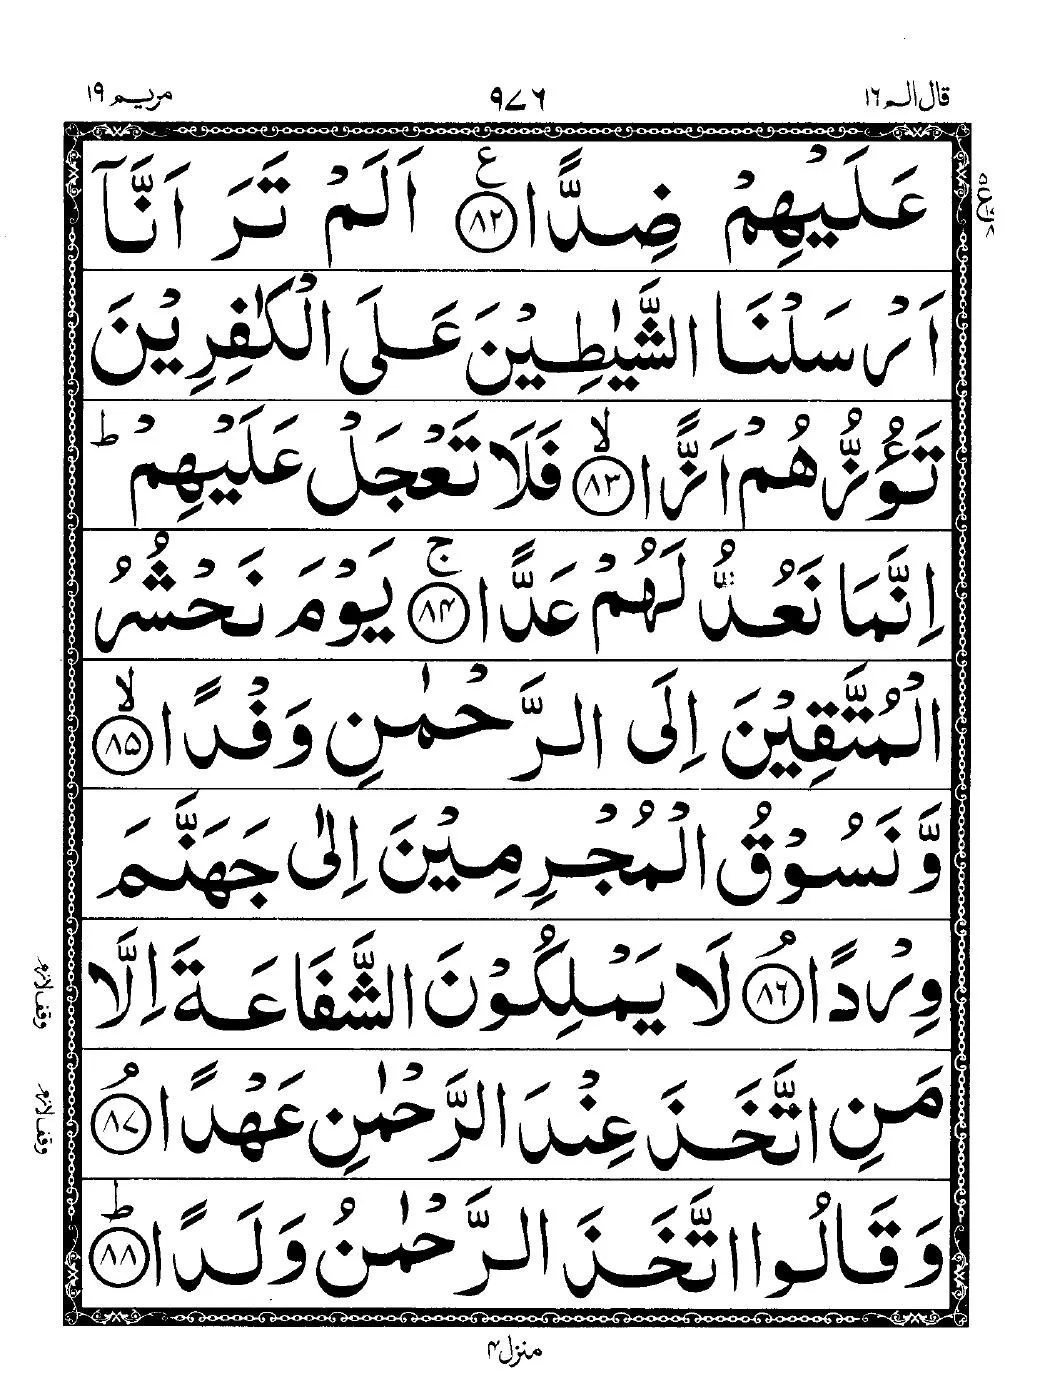 قال الم ١٦
٩٧٦
مريم ١٩
عَلَيْهِمْ ضِدًّا ﴿٨٢﴾ ع اَلَمْ تَرَ اَنَّآ
اَرْسَلْنَا الشَّيٰطِيْنَ عَلَى الْكٰفِرِيْنَ
تَؤُزُّهُمْ اَزًّا ﴿٨٣﴾ ۙ فَلَا تَعْجَلْ عَلَيْهِمْ ؕ
اِنَّمَا نَعُدُّ لَهُمْ عَدًّا ﴿٨٤﴾ ۚ يَوْمَ نَحْشُرُ
الْمُتَّقِيْنَ اِلَى الرَّحْمٰنِ وَفْدًا ﴿٨٥﴾ ۙ
وَّنَسُوْقُ الْمُجْرِمِيْنَ اِلٰى جَهَنَّمَ
وِرْدًا ﴿٨٦﴾ ۘ لَا يَمْلِكُوْنَ الشَّفَاعَةَ اِلَّا
مَنِ اتَّخَذَ عِنْدَ الرَّحْمٰنِ عَهْدًا ﴿٨٧﴾ ۘ
وَقَالُوا اتَّخَذَ الرَّحْمٰنُ وَلَدًا ﴿٨٨﴾ ؕ
وقف لازم
وقف لازم
منزل ۴